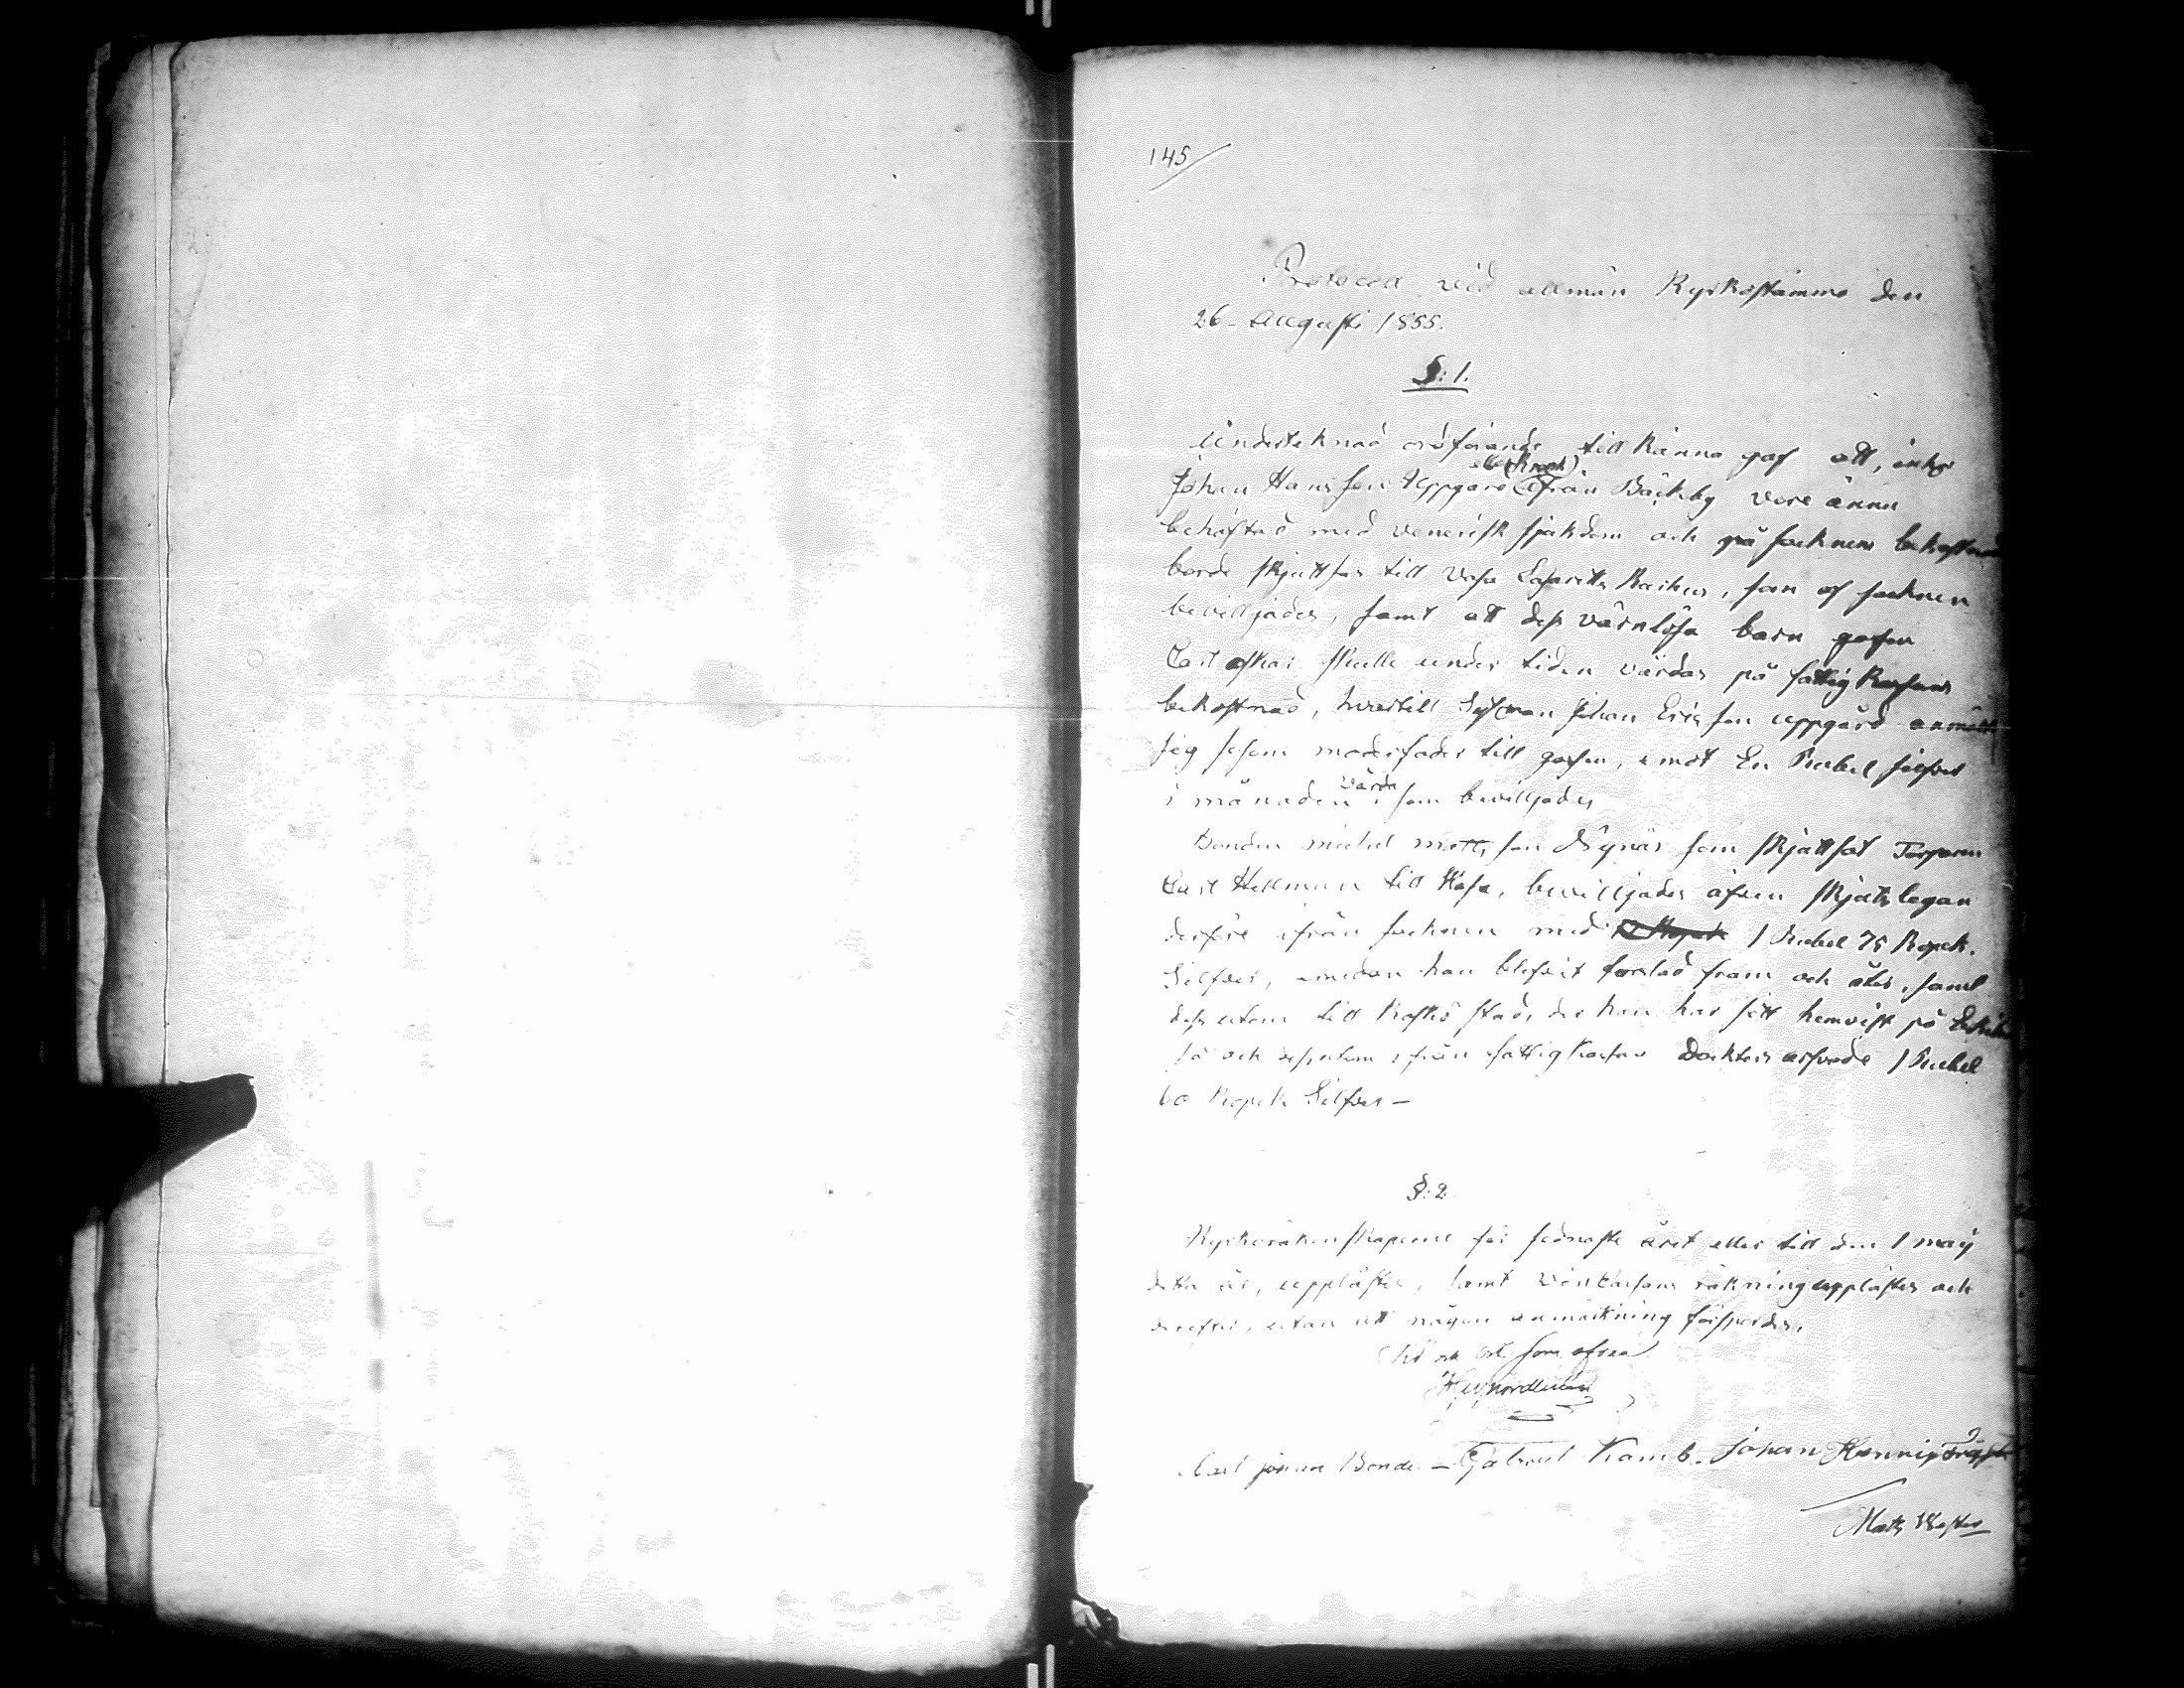 145
Protocoll vid allmän Kyrkostämma den
26 Augusti 1855.
§: 1.
Underteknad ordförande till känna gaf att, enkp
eller (Knook).
Johan Hansson Uppgård ifrån Bäckby vore ännu
behäftad med venerisk sjukdom och på socknens bekostnad
borde skjuttsas till Vasa Lasaretts Kurhus, som af socknen
bevilljades, samt att dess värnlösa barn gossen
Carl Oskar skulle under tiden vårdas på fattig Kassans
bekostnad, hvartill Sexman Johan Ericsson Uppgård anmält
sig såsom moderfader till gossen, emot En Rubel silfver
vårda
i månaden, som bevilljades
Bonden Michel Mattsson Nynäs som skjuttsat Torparen
Carl Hellman till Wasa, bevilljades äfven skjutslegan
derföre ifrån socknen med 1 Rubel 75 Kopek.
Silfver, emedan han blifvit forslad fram och åter, samt
dessutom till Kaskö stad, der han har sitt hemvist på
så och dessutom ifrån fattigkassan Docktors arfvode 1 Rubel
60 Kopek Silfver –
§: 2
Kyrkoräkenskaperne för sednaste året eller till den 1 maij
detta år, upplästes, samt räkning upplästes och
derefter, utan att någon anmärkning förspordes.
Tid och Ort som ofvan
Nordlund
Carl Johan Bonde – Gabriel Kamb. Johan Hennix
Matts Wester